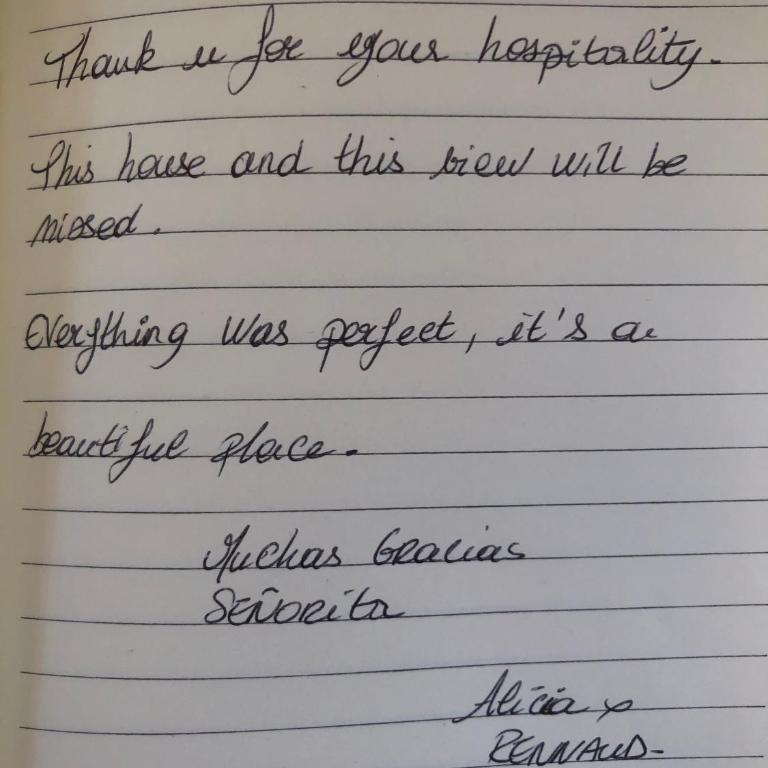 Thank u for your hospitality.
This house and this view will be
missed.
Everything was perfect, it's a
beautiful place.
Muchas Gracias
SEÑORITA
Alicia x
RENNAUD-